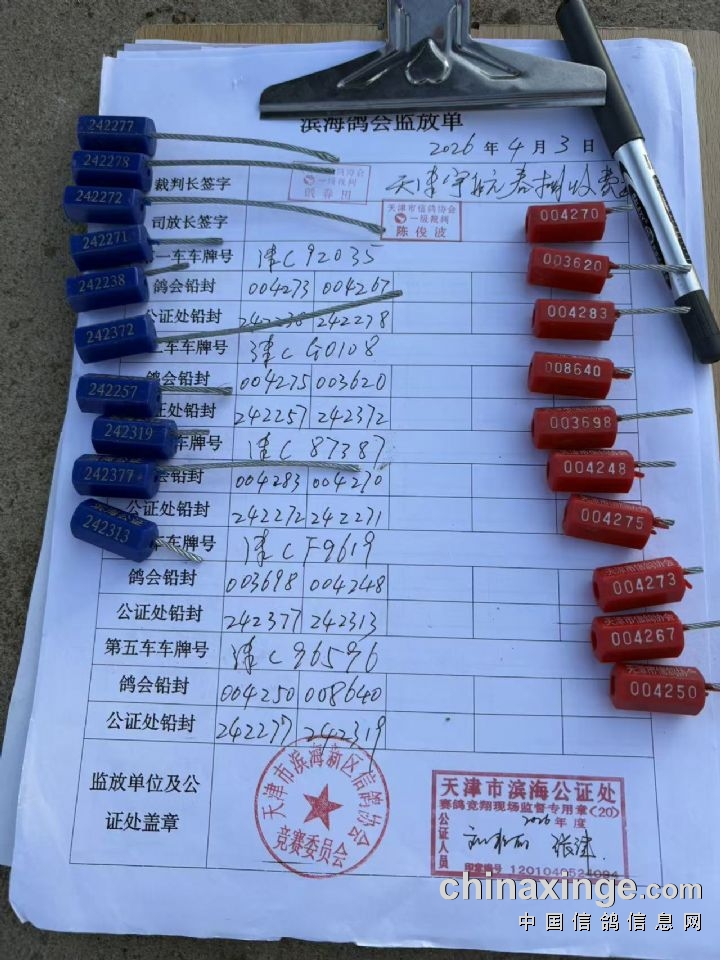 滨海鸽会监放单
2026 年 4 月 3 日
裁判长签字
一级裁判
天津宇航春棚收费
司放长签字
天津市信鸽协会
一级裁判
陈俊波
一车车牌号 津C92035
鸽会铅封 004273 004267
公证处铅封 242238 242278
二车车牌号 津C G0108
鸽会铅封 004275 003620
公证处铅封 242257 242372
车牌号 津C 87387
鸽会铅封 004283 004270
公证处铅封 242272 242271
车牌号 津C F9619
鸽会铅封 003698 004248
公证处铅封 242377 242313
第五车车牌号 津C96596
鸽会铅封 004250 008640
公证处铅封 242277 242319
监放单位及公
证处盖章
天津市滨海新区信鸽协会
竞赛委员会
天津市滨海公证处
赛鸽竞翔现场监督专用章(20)
2026 年度
公证人员
张津
242277
242278
242272
242271
242238
242372
242257
242319
242377
242313
004270
003620
004283
008640
003698
004248
004275
004273
004267
004250
chinaxinge.com
中国信鸽信息网